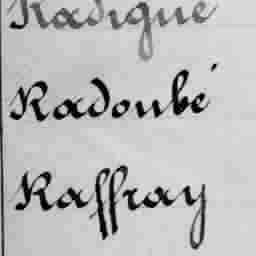 Radigue
Radoubé
Raffray